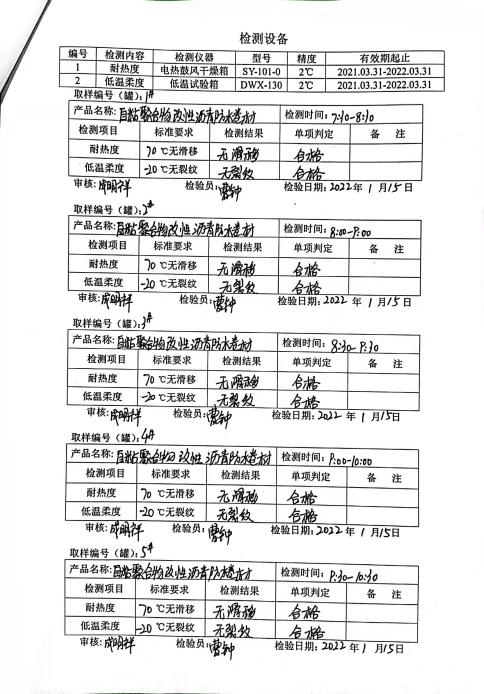 检测设备
编号 检测内容 检测仪器 型号 精度 有效期起止
1 耐热度 电热鼓风干燥箱 SY-101-0 2℃ 2021.03.31-2022.03.31
2 低温柔度 低温试验箱 DWX-130 2℃ 2021.03.31-2022.03.31
取样编号（罐）：1#
产品名称：自粘聚合物改性沥青防水卷材 检测时间：7:30-8:30
检测项目 标准要求 检测结果 单项判定 备 注
耐热度 70 ℃无滑移 无滑移 合格
低温柔度 -20 ℃无裂纹 无裂纹 合格
审核：成明祥 检验员：曹钟 检验日期：2022 年 1 月 15 日
取样编号（罐）：2#
产品名称：自粘聚合物改性沥青防水卷材 检测时间：8:00-9:00
检测项目 标准要求 检测结果 单项判定 备 注
耐热度 70 ℃无滑移 无滑移 合格
低温柔度 -20 ℃无裂纹 无裂纹 合格
审核：成明祥 检验员：曹钟 检验日期：2022 年 1 月 15 日
取样编号（罐）：3#
产品名称：自粘聚合物改性沥青防水卷材 检测时间：8:30-9:30
检测项目 标准要求 检测结果 单项判定 备 注
耐热度 70 ℃无滑移 无滑移 合格
低温柔度 -20 ℃无裂纹 无裂纹 合格
审核：成明祥 检验员：曹钟 检验日期：2022 年 1 月 15 日
取样编号（罐）：4#
产品名称：自粘聚合物改性沥青防水卷材 检测时间：9:00-10:00
检测项目 标准要求 检测结果 单项判定 备 注
耐热度 70 ℃无滑移 无滑移 合格
低温柔度 -20 ℃无裂纹 无裂纹 合格
审核：成明祥 检验员：曹钟 检验日期：2022 年 1 月 15 日
取样编号（罐）：5#
产品名称：自粘聚合物改性沥青防水卷材 检测时间：9:30-10:30
检测项目 标准要求 检测结果 单项判定 备 注
耐热度 70 ℃无滑移 无滑移 合格
低温柔度 -20 ℃无裂纹 无裂纹 合格
审核：成明祥 检验员：曹钟 检验日期：2022 年 1 月 15 日